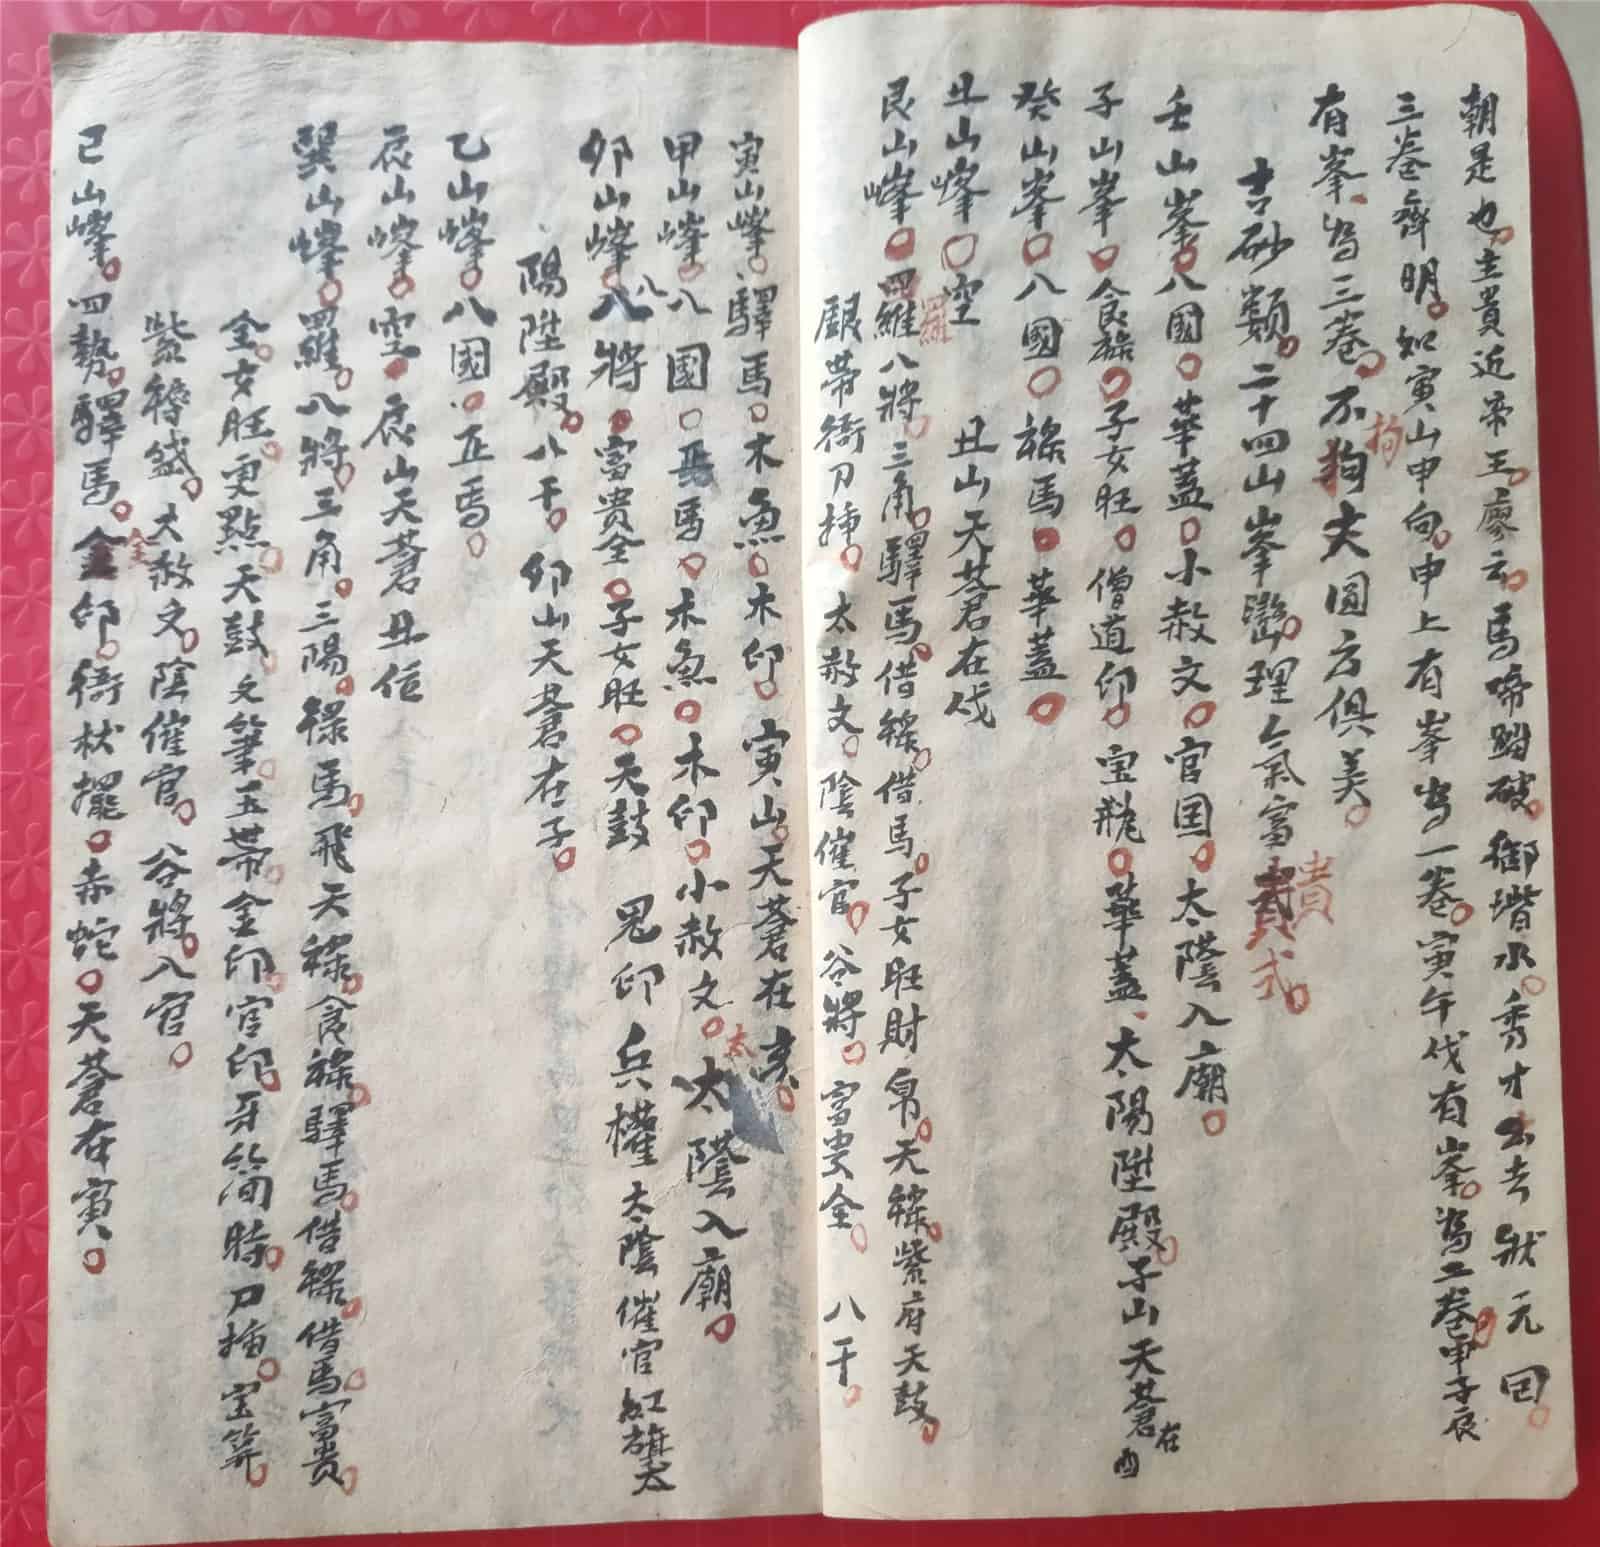 朝是也。主貴近帝王。廖云。馬啼踏破。御堦水。秀才出去狀元回。
三卷齊明。如寅山申向。申上有峯為一卷。寅午戌有峯。為二卷。申子辰
有峯。為三卷。不狗拘尖圓方俱美。
吉砂類。二十四山峯巒。理氣富貴貴式。
壬山峯。八國。華蓋。小赦文。官国。太陰入廟。
子山峯。食祿。子女旺。僧道印。宝瓶。華蓋、太陽陞殿。子山天蒼在酉
癸山峯。八國。祿馬。華蓋。
丑山峰。空 丑山天蒼在戌
艮山峰。四維羅八將。三角。驛馬。借祿。借馬。子女旺財帛。天祿。紫府天鼓。
銀帶衙刀揷。太赦文。陰催官。谷將。富貴全。八干。
寅山峰。驛馬。木魚。木印。寅山。天蒼在亥。
甲山峰。八國。馬。木魚。木印。小赦文。太太陰入廟。
卯山峰。八八將。富貴全。子女旺。天鼓 鬼印兵權太陰催官紅旗太
陽陞殿。八干。卯山天蒼在子。
乙山峰。八國。正馬。
辰山峰。空。辰山天蒼丑位
巽山峰。四維。八將。三角。三陽。祿馬。飛天祿。食祿。驛馬。借祿。借馬。富貴
全。女旺。更點。天鼓。文筆。玉帶。金印。官印。牙笏簡時。刀揷。宝筭。
紫綬袋。太赦文。陰催官。谷將。入官。
巳山峰。四勢。驛馬。金金印。衙杖擺。赤蛇。天蒼在寅。